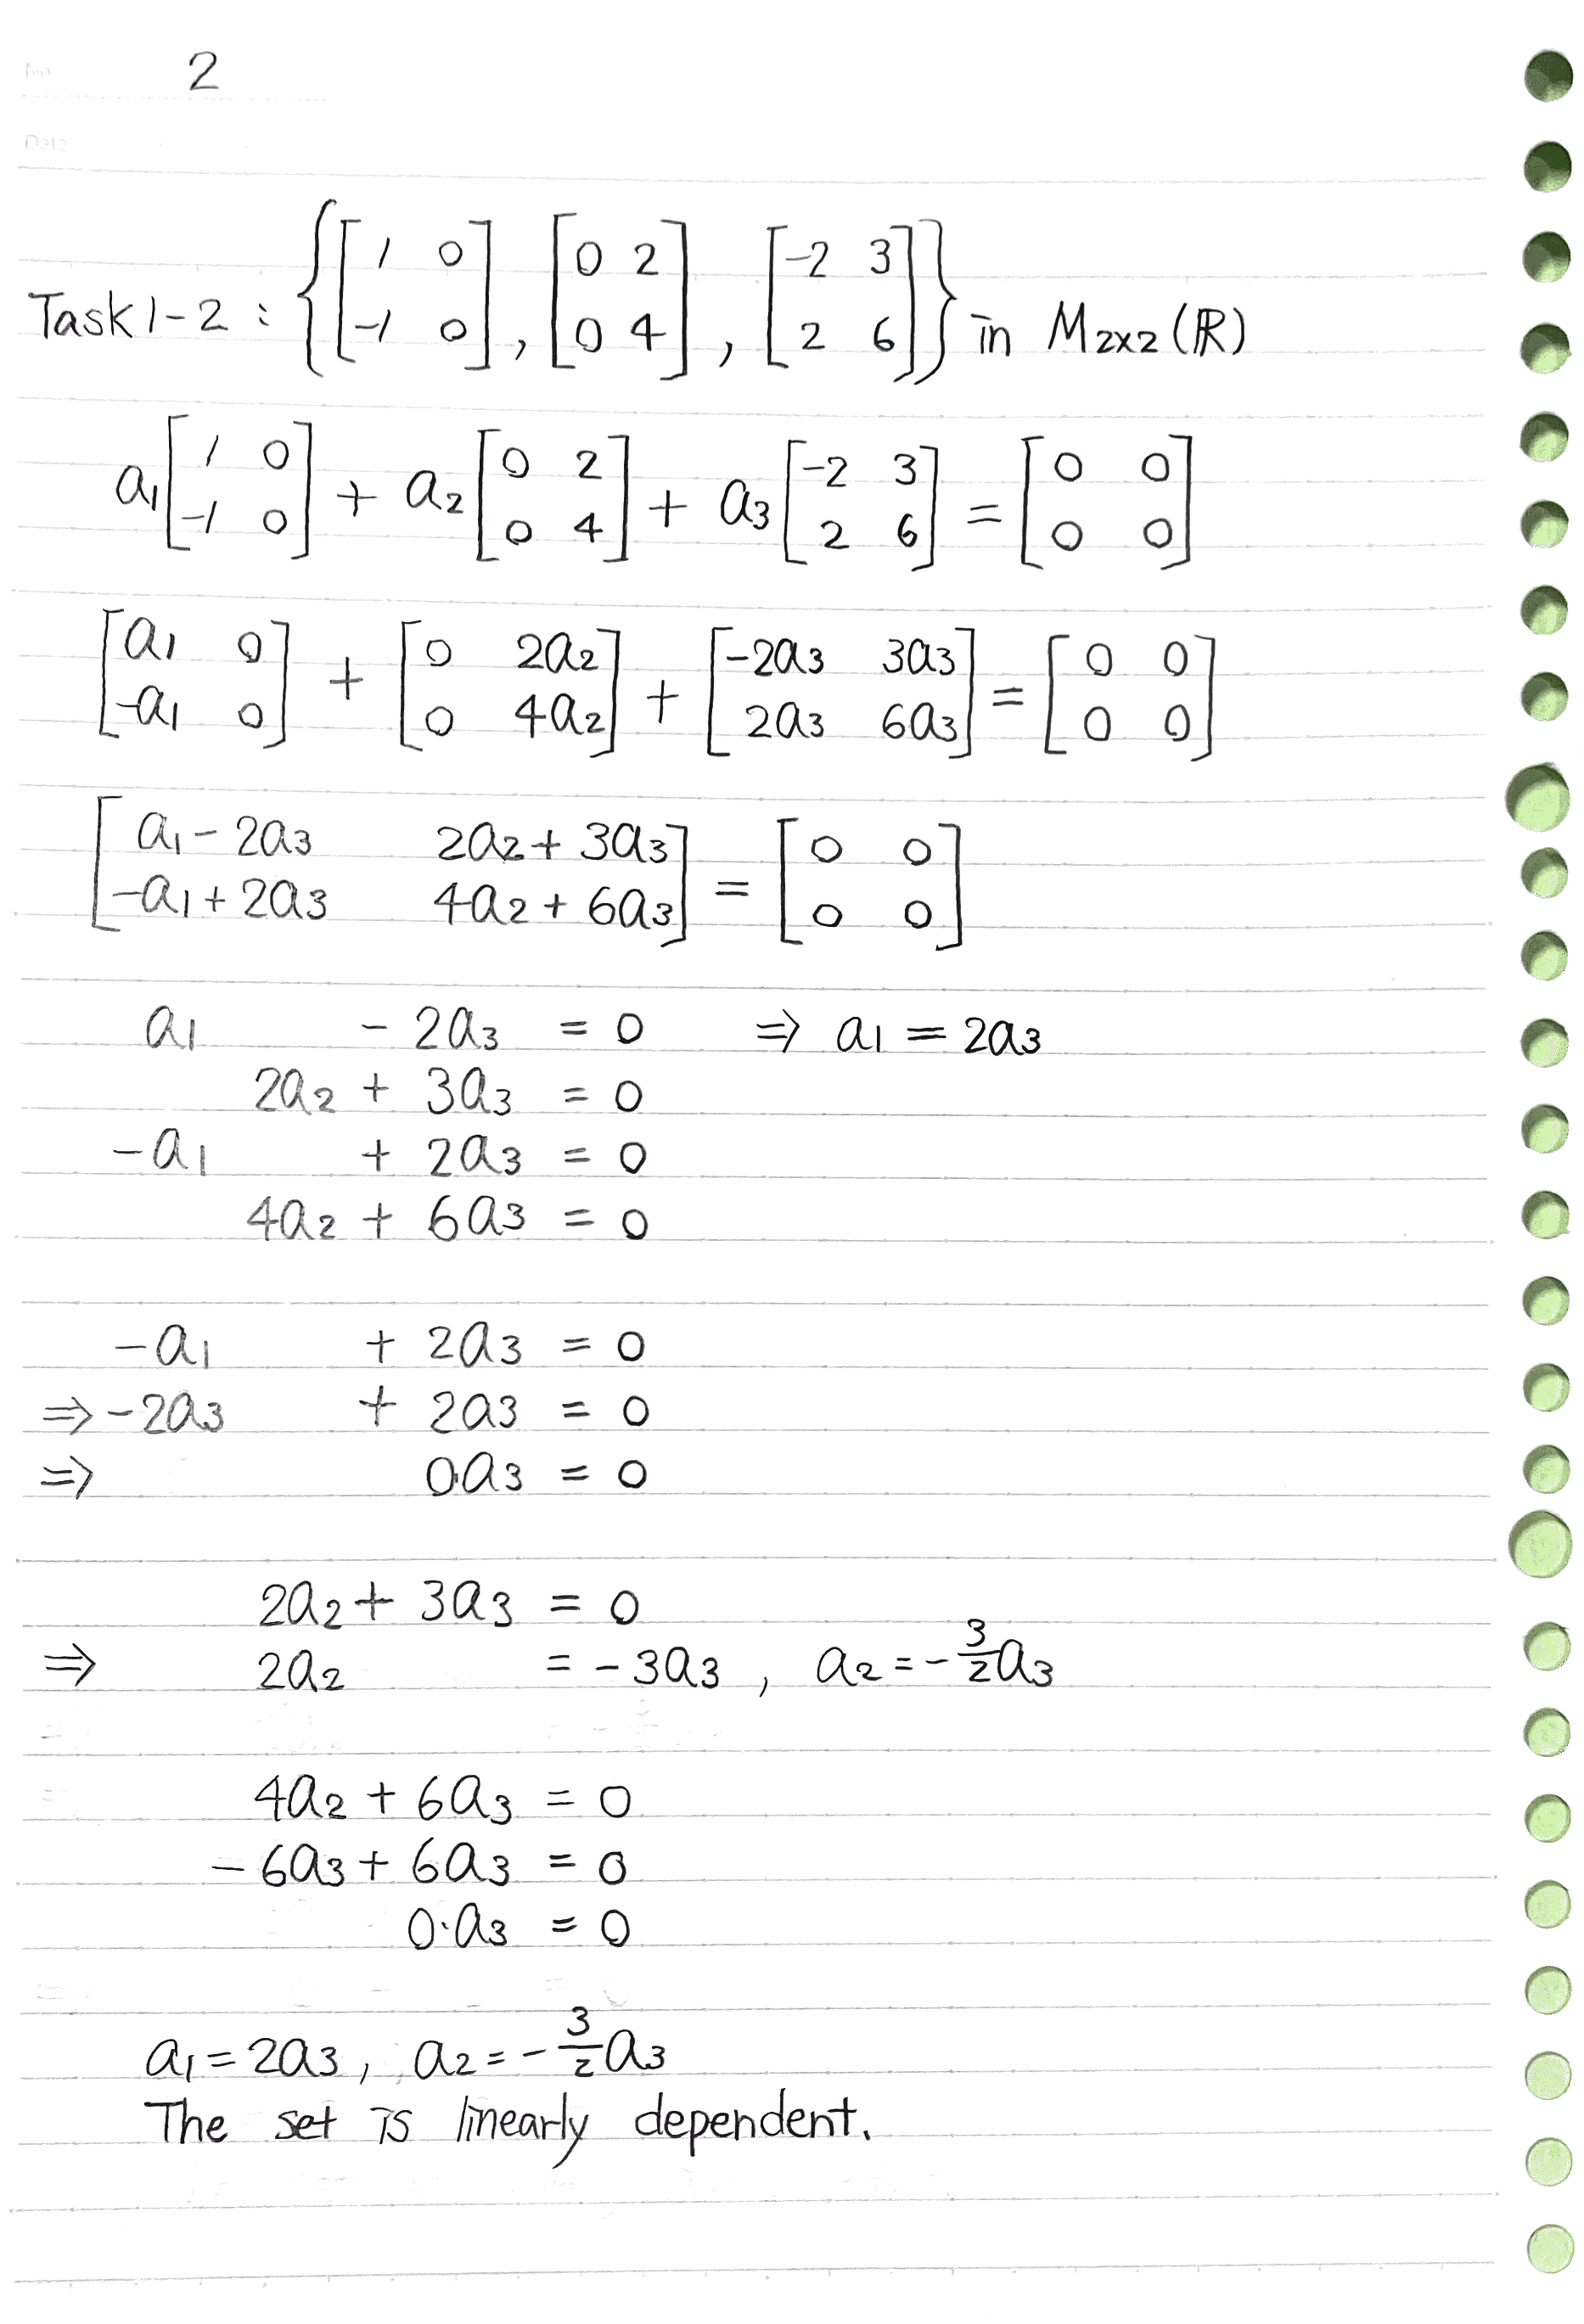 No
2
Date
Task 1-2 : { [ 1 0 ; -1 0 ] , [ 0 2 ; 0 4 ] , [ -2 3 ; 2 6 ] } in M2x2 (ℝ)
a1 [ 1 0 ; -1 0 ] + a2 [ 0 2 ; 0 4 ] + a3 [ -2 3 ; 2 6 ] = [ 0 0 ; 0 0 ]
[ a1 0 ; -a1 0 ] + [ 0 2a2 ; 0 4a2 ] + [ -2a3 3a3 ; 2a3 6a3 ] = [ 0 0 ; 0 0 ]
[ a1 - 2a3 2a2 + 3a3 ; -a1 + 2a3 4a2 + 6a3 ] = [ 0 0 ; 0 0 ]
a1 - 2a3 = 0 ⇒ a1 = 2a3
2a2 + 3a3 = 0
-a1 + 2a3 = 0
4a2 + 6a3 = 0
-a1 + 2a3 = 0
⇒ -2a3 + 2a3 = 0
⇒ 0·a3 = 0
2a2 + 3a3 = 0
⇒ 2a2 = -3a3 , a2 = -3/2 a3
4a2 + 6a3 = 0
-6a3 + 6a3 = 0
0·a3 = 0
a1 = 2a3 , a2 = -3/2 a3
The set is linearly dependent.